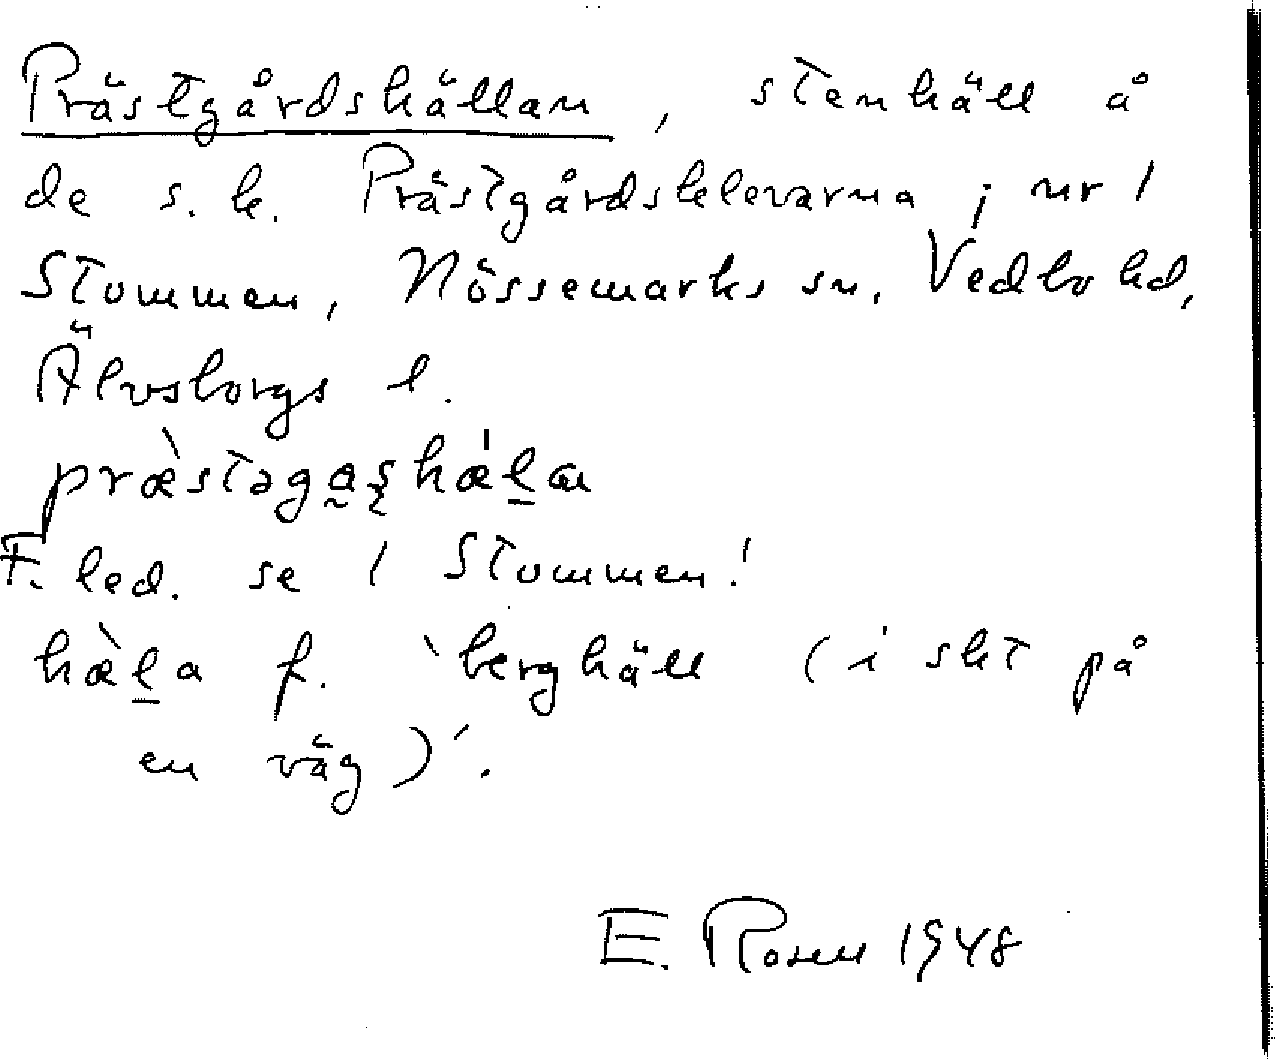 Prästgårdshällan, stenhäll å
de s.k. Prästgårdsklevarna i nr 1
Stommen, Nössemarks sn, Vedbo hd,
Älvsborgs l.
præ̀stəga̰ʂhæ̍l̠ɑ
F. led. se 1 Stommen!
hæ̀l̠a f. ‵berghäll (i sht på
en väg)′.
E. Rosén 1948